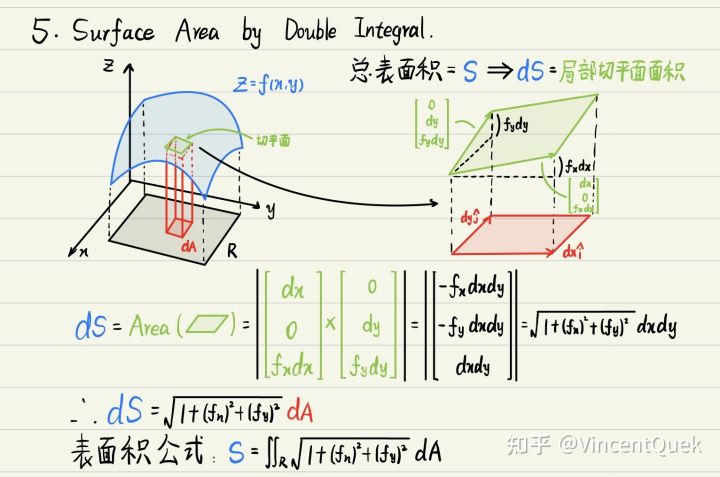 5. Surface Area by Double Integral.
总表面积 = S ⇒ dS = 局部切平面面积
z
z=f(x,y)
切平面
y
x
dA
R
[0 dy fydy]
fydy
fxdx
[dx 0 fxdx]
dyĵ
dxî
dS = Area (▱) = |[dx 0 fxdx] × [0 dy fydy]| = |[-fxdxdy -fydxdy dxdy]| = √1+(fx)²+(fy)² dxdy
∴ dS = √1+(fx)²+(fy)² dA
表面积公式: S = ∬R √1+(fx)²+(fy)² dA
知乎 @VincentQuek